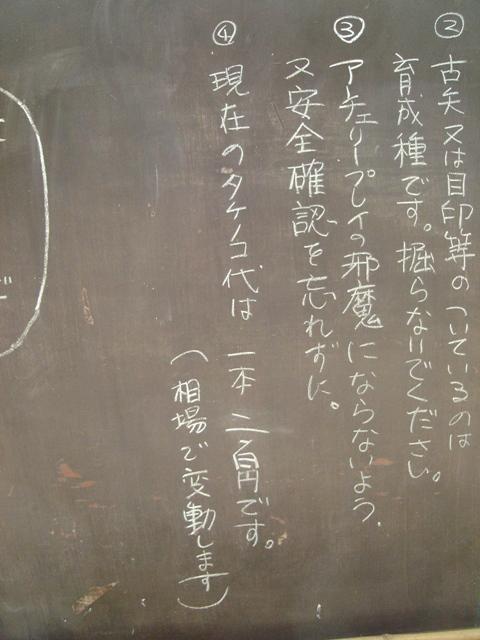 ② 古矢又は目印等のついているのは
育成種です。掘らないでください。
③ アーチェリープレイの邪魔にならないよう、
又安全確認を忘れずに。
④ 現在のタケノコ代は 一本 二百円です。
(相場で変動します)